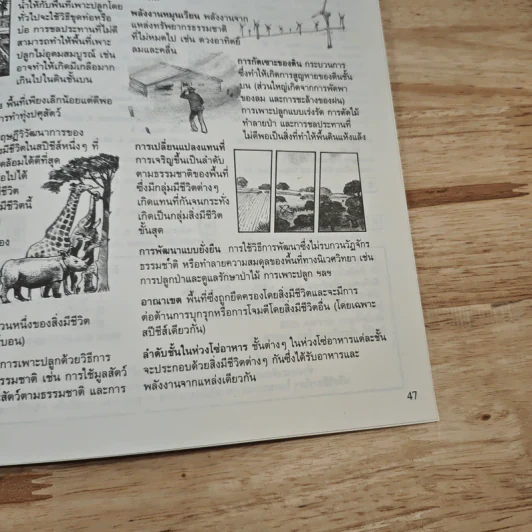 น้ำให้กับพื้นที่เพาะปลูกโดย
ทั่วไปจะใช้วิธีขุดท่อหรือ
บ่อ การชลประทานที่ไม่ดี
สามารถทำให้พื้นที่เพาะ
ปลูกไม่อุดมสมบูรณ์ เช่น
อาจทำให้เกิดมีเกลือมาก
เกินไปในดินชั้นบน
พื้นที่เพียงเล็กน้อยแต่ดีพอ
ารทำทุ่งปศุสัตว์
ฤษฎีวิวัฒนาการของ
มีชีวิตในสปีชีส์หนึ่งๆ ที่
ดล้อมได้ดีที่สุด
อไปได้
ชีวิต
มีชีวิตนี้
อง
วนหนึ่งของสิ่งมีชีวิต
บอน)
การเพาะปลูกด้วยวิธีการ
รรมชาติ เช่น การใช้มูลสัตว์
สัตว์ตามธรรมชาติ และการ
พลังงานหมุนเวียน พลังงานจาก
แหล่งทรัพยากรธรรมชาติ
ที่ไม่หมดไป เช่น ดวงอาทิตย์
ลมและคลื่น
การกัดเซาะของดิน กระบวนการ
ซึ่งทำให้เกิดการสูญหายของดินชั้น
บน (ส่วนใหญ่เกิดจากการพัดพา
ของลม และการชะล้างของฝน)
การเพาะปลูกแบบเร่งรัด การตัดไม้
ทำลายป่า และการชลประทานที่
ไม่ดีพอเป็นสิ่งที่ทำให้พื้นดินแห้งแล้ง
การเปลี่ยนแปลงแทนที่
การเจริญขึ้นเป็นลำดับ
ตามธรรมชาติของพื้นที่
ซึ่งมีกลุ่มมีชีวิตต่างๆ
เกิดแทนที่กันจนกระทั่ง
เกิดเป็นกลุ่มสิ่งมีชีวิต
ขั้นสุด
การพัฒนาแบบยั่งยืน การใช้วิธีการพัฒนาซึ่งไม่รบกวนวัฏจักร
ธรรมชาติ หรือทำลายความสมดุลของพื้นที่ทางนิเวศวิทยา เช่น
การปลูกป่าและดูแลรักษาป่าไม้ การเพาะปลูก ฯลฯ
อาณาเขต พื้นที่ซึ่งถูกยึดครองโดยสิ่งมีชีวิตและจะมีการ
ต่อต้านการบุกรุกหรือการโจมตีโดยสิ่งมีชีวิตอื่น (โดยเฉพาะ
สปีชีส์เดียวกัน)
ลำดับชั้นในห่วงโซ่อาหาร ชั้นต่างๆ ในห่วงโซ่อาหารแต่ละชั้น
จะประกอบด้วยสิ่งมีชีวิตต่างๆ กันซึ่งได้รับอาหารและ
พลังงานจากแหล่งเดียวกัน
47